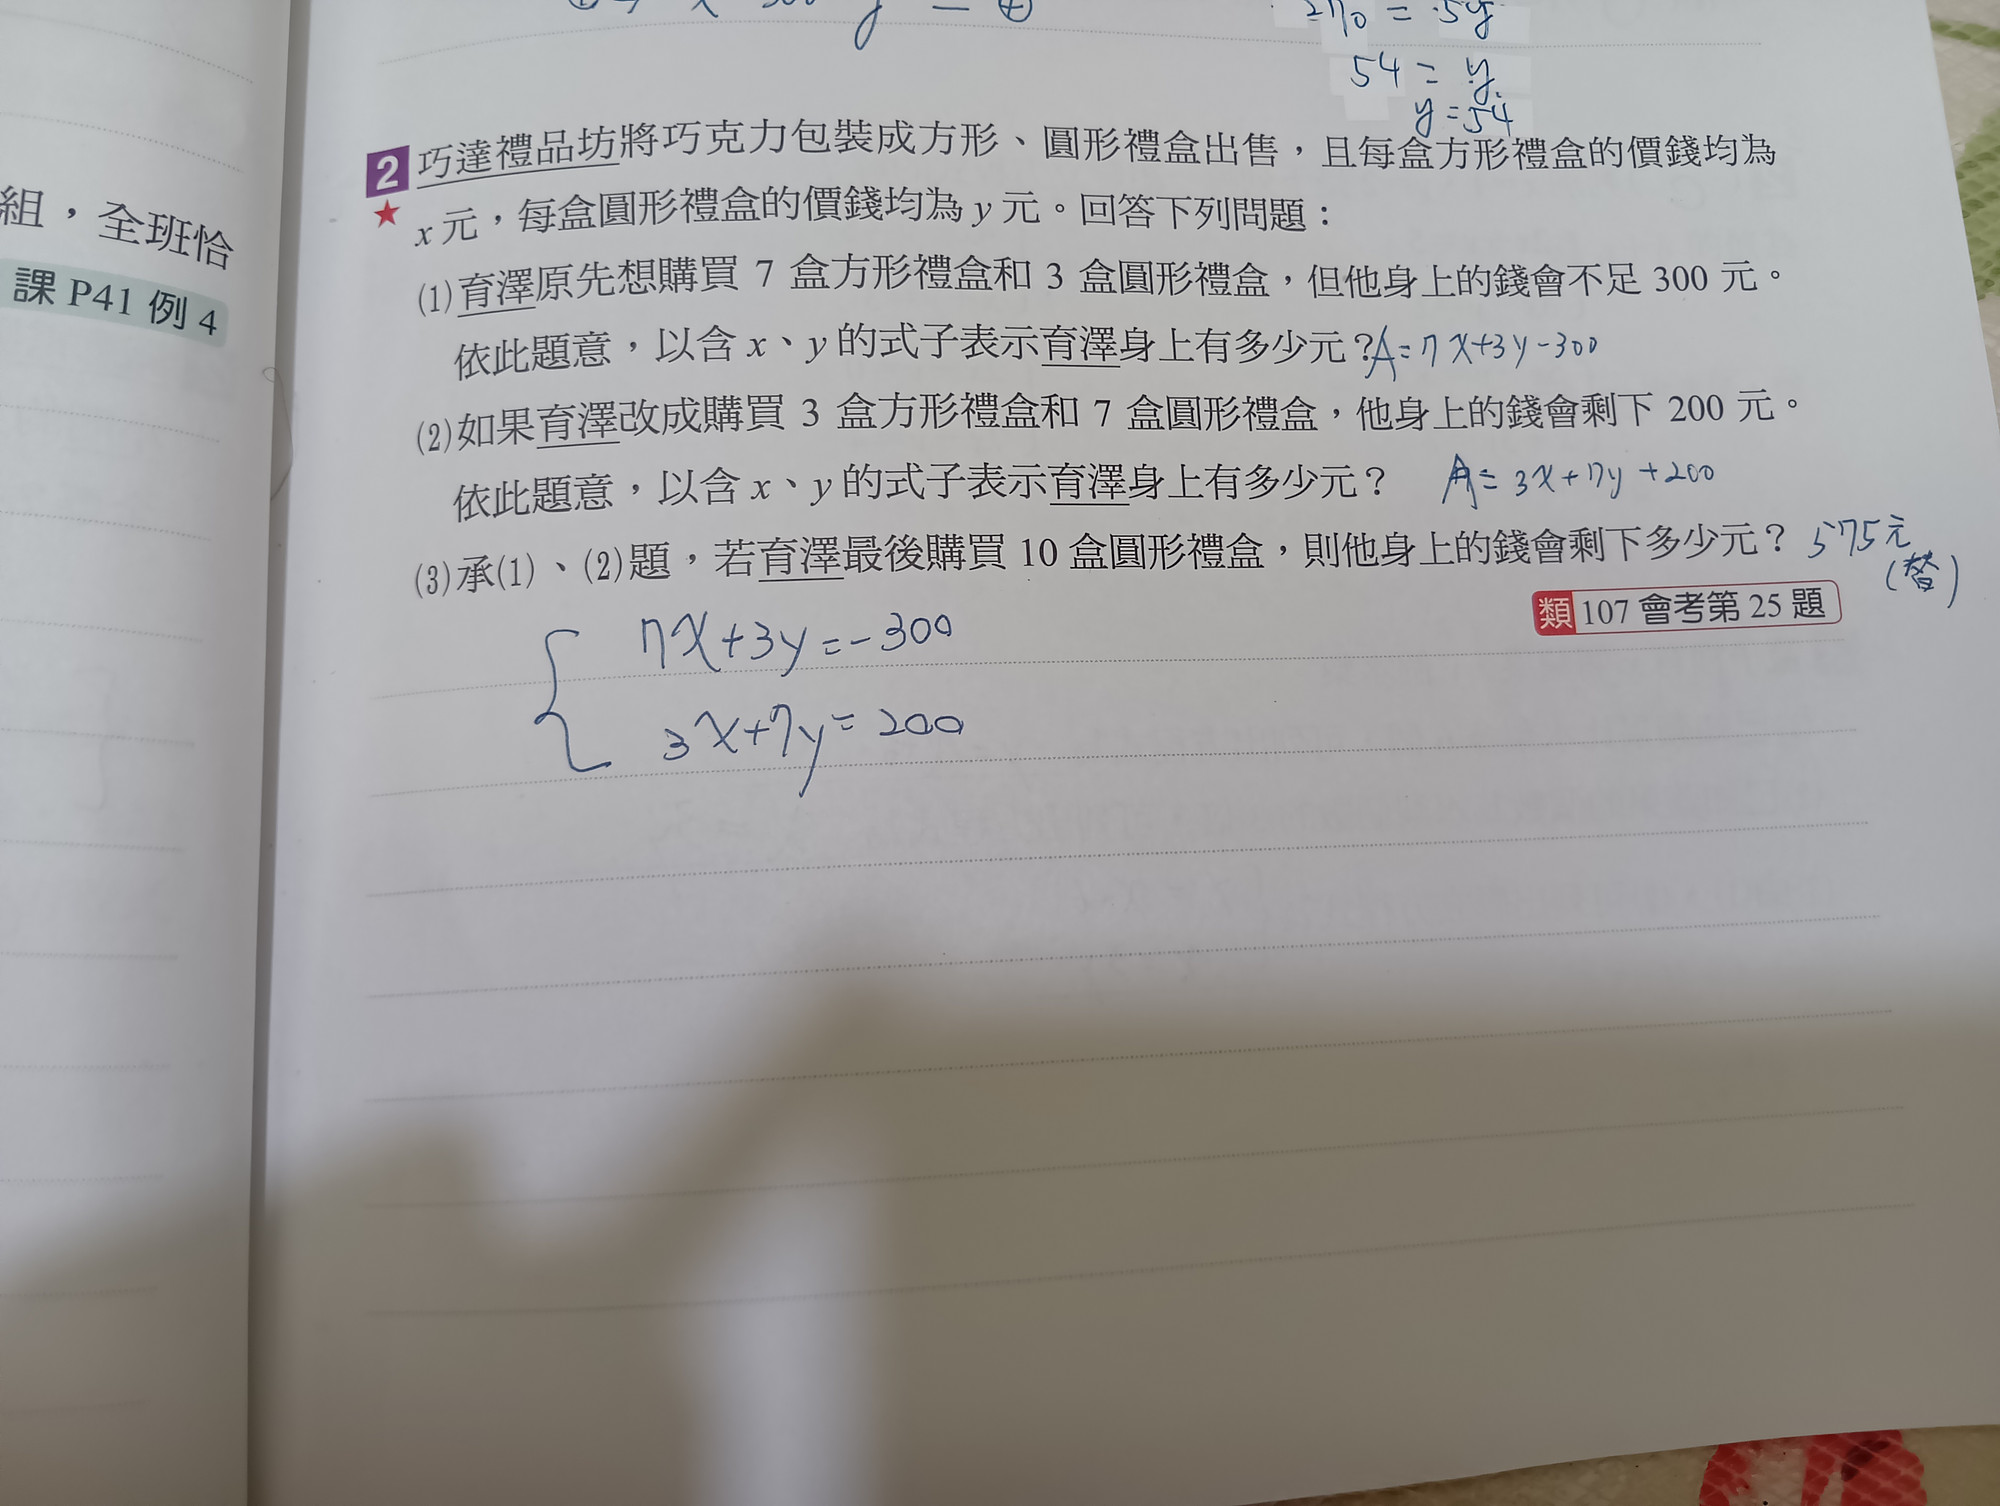 270 = 5y
54 = y
y = 54
2 巧達禮品坊將巧克力包裝成方形、圓形禮盒出售，且每盒方形禮盒的價錢均為
x 元，每盒圓形禮盒的價錢均為 y 元。回答下列問題：
(1)育澤原先想購買 7 盒方形禮盒和 3 盒圓形禮盒，但他身上的錢會不足 300 元。
依此題意，以含 x、y 的式子表示育澤身上有多少元？A=7x+3y-300
(2)如果育澤改成購買 3 盒方形禮盒和 7 盒圓形禮盒，他身上的錢會剩下 200 元。
依此題意，以含 x、y 的式子表示育澤身上有多少元？ A=3x+7y+200
(3)承(1)、(2)題，若育澤最後購買 10 盒圓形禮盒，則他身上的錢會剩下多少元？ 575元
(替)
類 107 會考第 25 題
7x+3y=-300
3x+7y=200
組，全班恰
課 P41 例 4